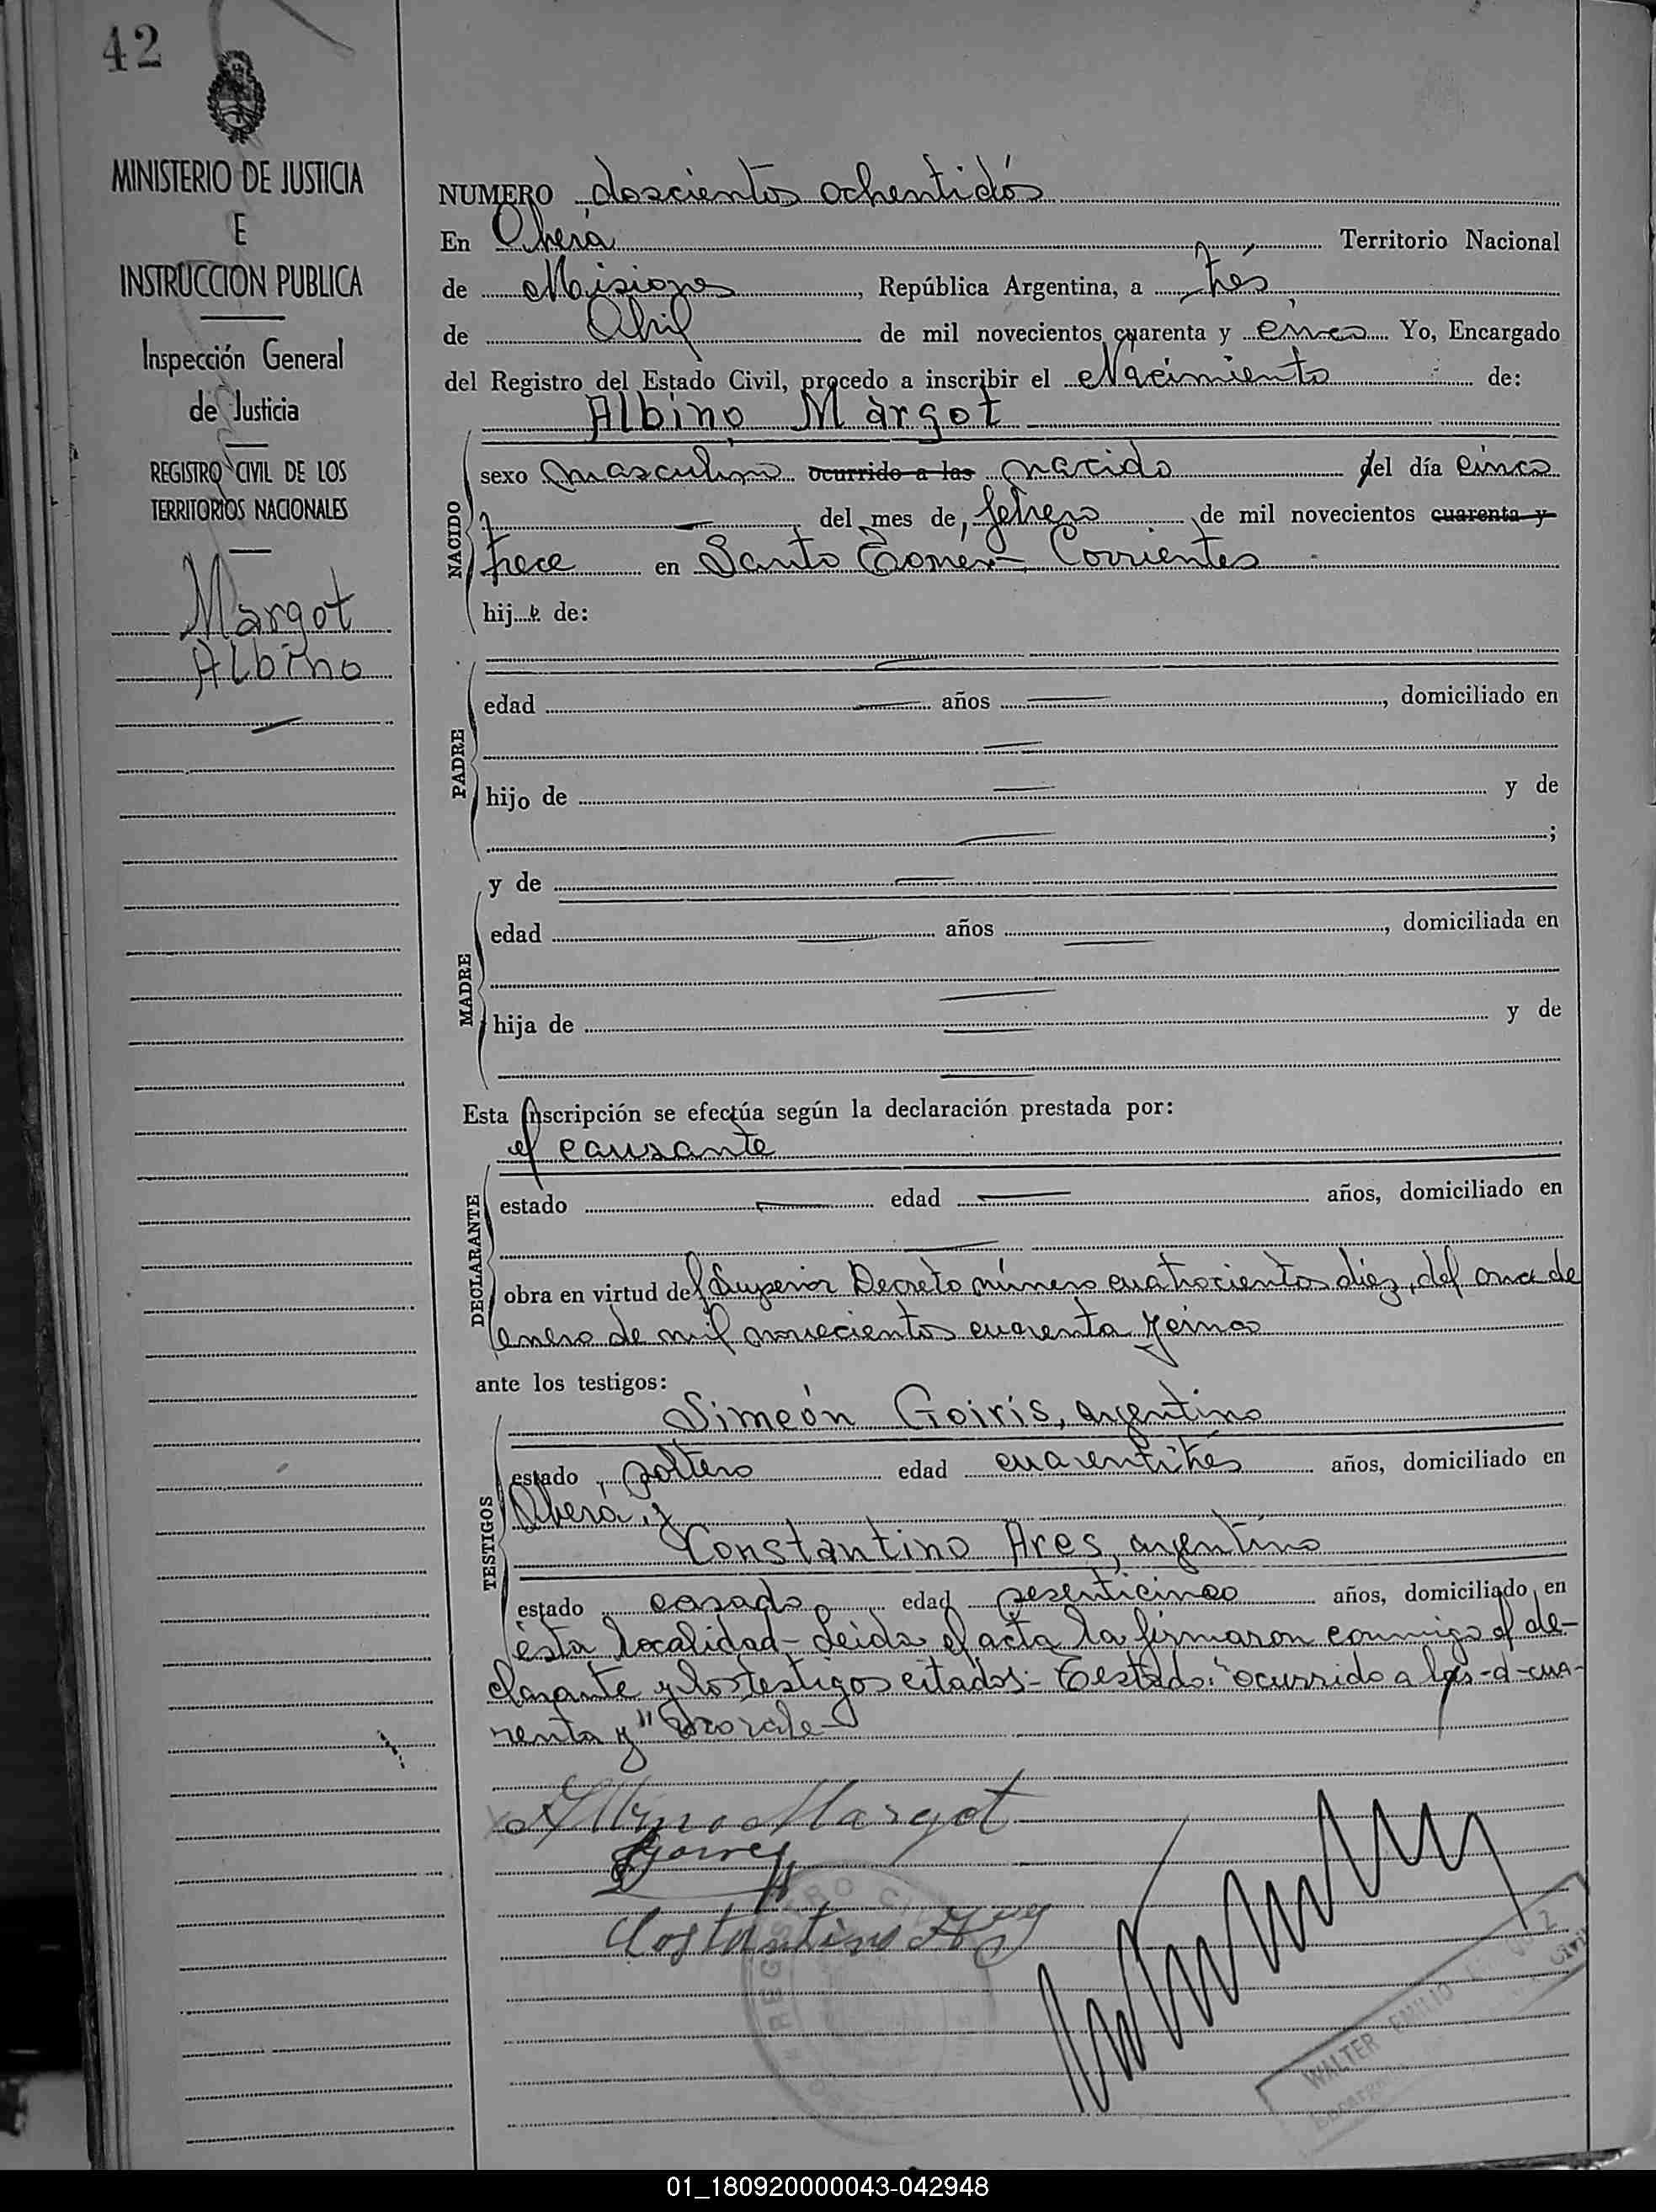 42
MINISTERIO DE JUSTICIA
E
INSTRUCCION PUBLICA
Inspección General
de Justicia
REGISTRO CIVIL DE LOS
TERRITORIOS NACIONALES
Margot
Albino
NUMERO doscientos ochentidós
En Oberá Territorio Nacional
de Misiones, República Argentina, a trés
de Abril de mil novecientos cuarenta y cinco Yo, Encargado
del Registro del Estado Civil, procedo a inscribir el Nacimiento de:
Albino Margot
NACIDO
sexo masculino ocurrido a las nacido el día cinco
del mes de febrero de mil novecientos cuarenta y
trece en Santo Tomé - Corrientes
hij o de:
PADRE
edad años , domiciliado en
hijo de y de
;
y de
MADRE
edad años , domiciliada en
hija de y de
Esta inscripción se efectúa según la declaración prestada por:
el causante
DECLARANTE
estado edad años, domiciliado en
obra en virtud del Superior Decreto número cuatrocientos diez, del once de
enero de mil novecientos cuarenta y cinco
ante los testigos:
TESTIGOS
Simeón Goiris, argentino
estado soltero edad cuarentitrés años, domiciliado en
Oberá, y
Constantino Ares, argentino
estado casado edad sesenticinco años, domiciliado en
ésta localidad - Leida el acta la firmaron conmigo el de-
clarante y los testigos citados - Testado: "ocurrido a las -d- cua-
renta y" No vale -
Albino Margot
Costantino
REGISTRO CIVIL
WALTER EMILIO
Encargado
Civil
01_180920000043-042948